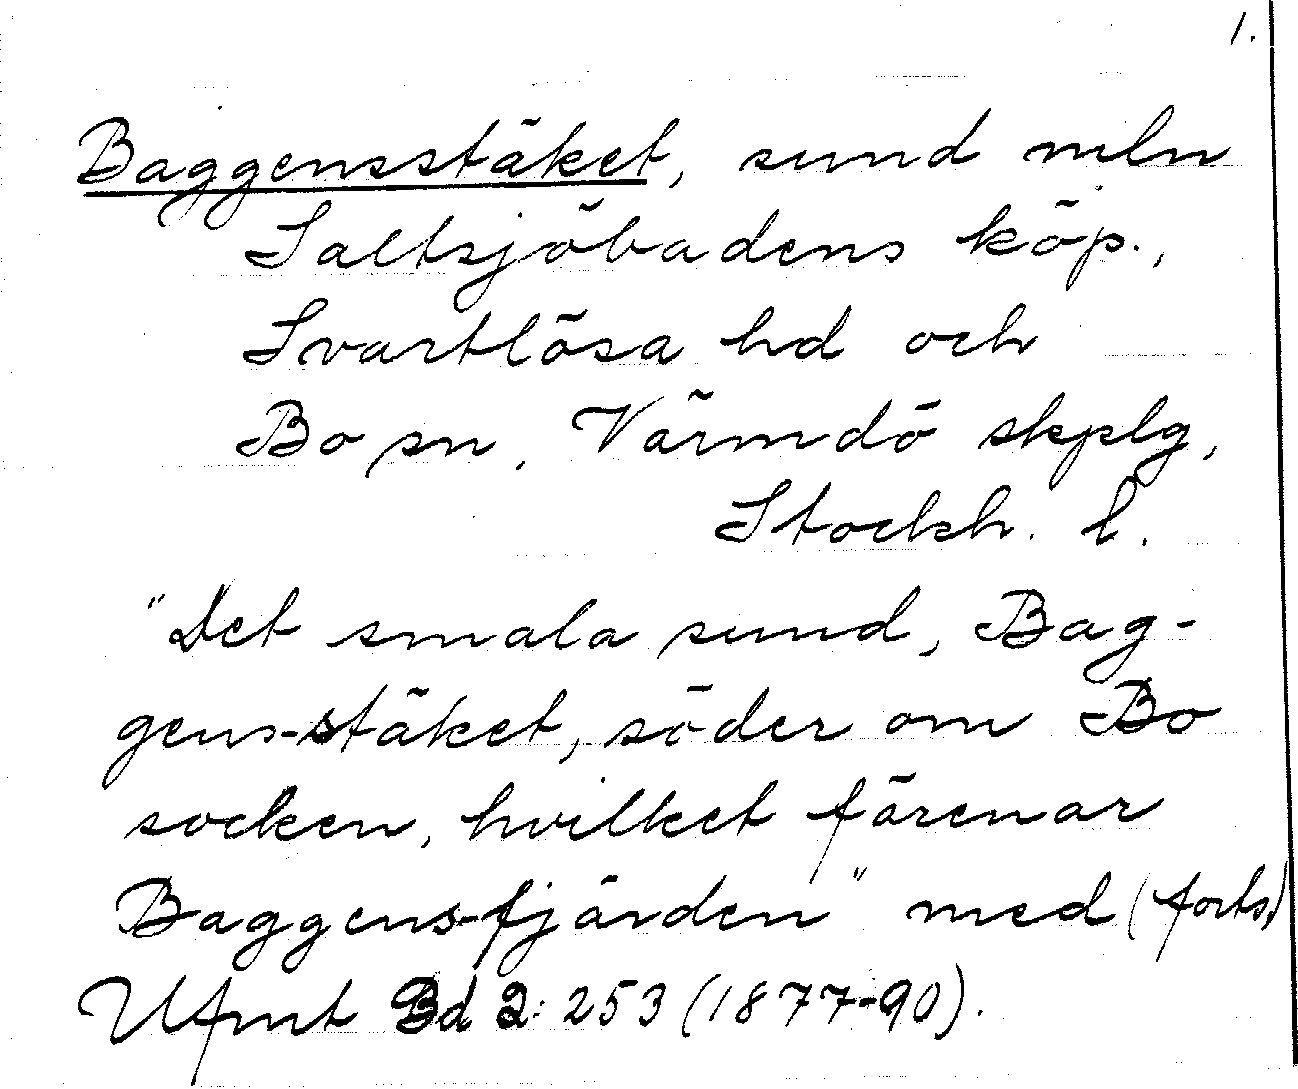 1.
Baggensstäket, sund mln
Saltsjöbadens köp.,
Svartlösa hd och
Bo sn, Värmdö skplg,
Stockh. l.
"Det smala sund, Bag-
gens-stäket, söder om Bo
socken, hvilket förenar
Baggens-fjärden" med (forts.)
Ufmt Bd 2: 253 (1877-90).